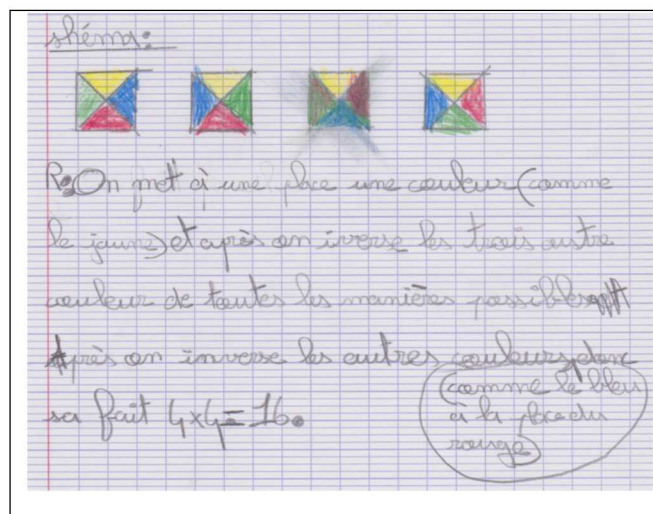 shéma:
R: On met à une place une couleur (comme
le jaune) et après on inverse les trois autre
couleur de toutes les manières possibles
Après on inverse les autres couleurs, donc
(comme le bleu
sa fait 4x4=16.
à la place du
rouge)